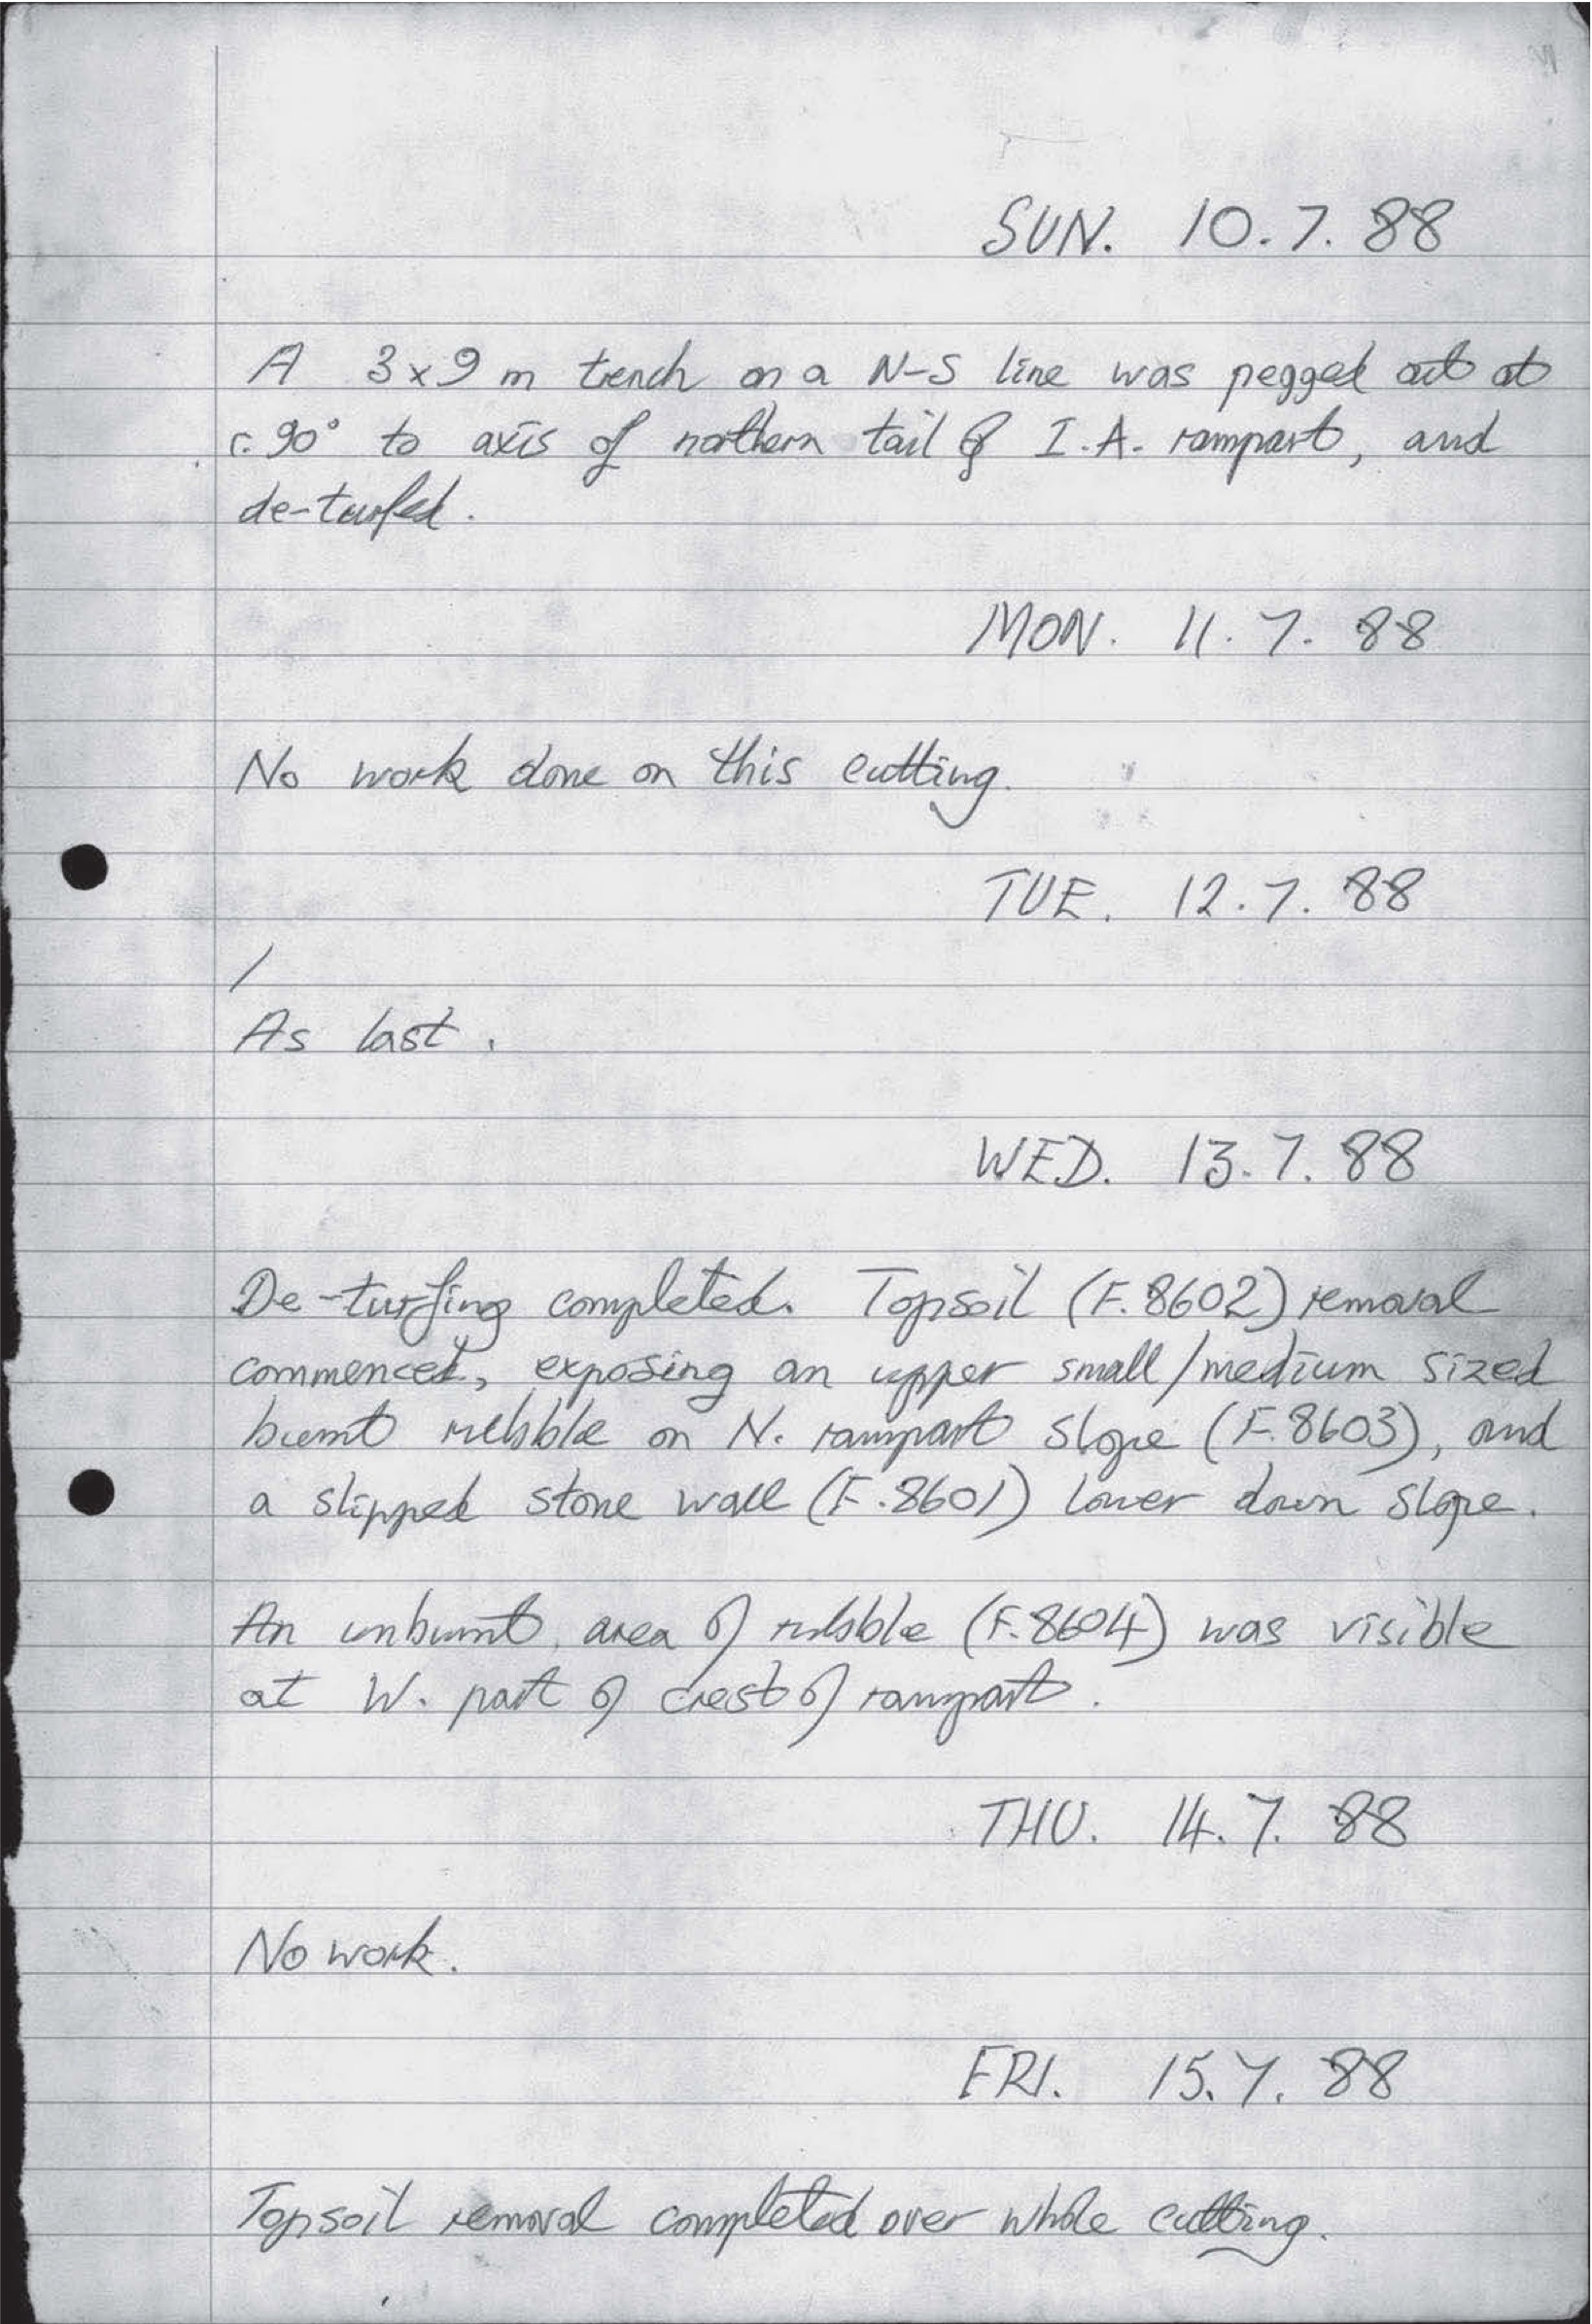 SUN. 10.7.88
A 3x9 m trench on a N-S line was pegged out at
c.90° to axis of northern tail of I.A. rampart, and
de-turfed.
MON. 11.7.88
No work done on this cutting.
TUE. 12.7.88
/
As last.
WED. 13.7.88
De-turfing completed. Topsoil (F.8602) removal
commenced, exposing an upper small/medium sized
burnt rubble on N. rampart slope (F.8603), and
a slipped stone wall (F.8601) lower down slope.
An unburnt area of rubble (F.8604) was visible
at W. part of crest of rampart.
THU. 14.7.88
No work.
FRI. 15.7.88
Topsoil removal completed over whole cutting.